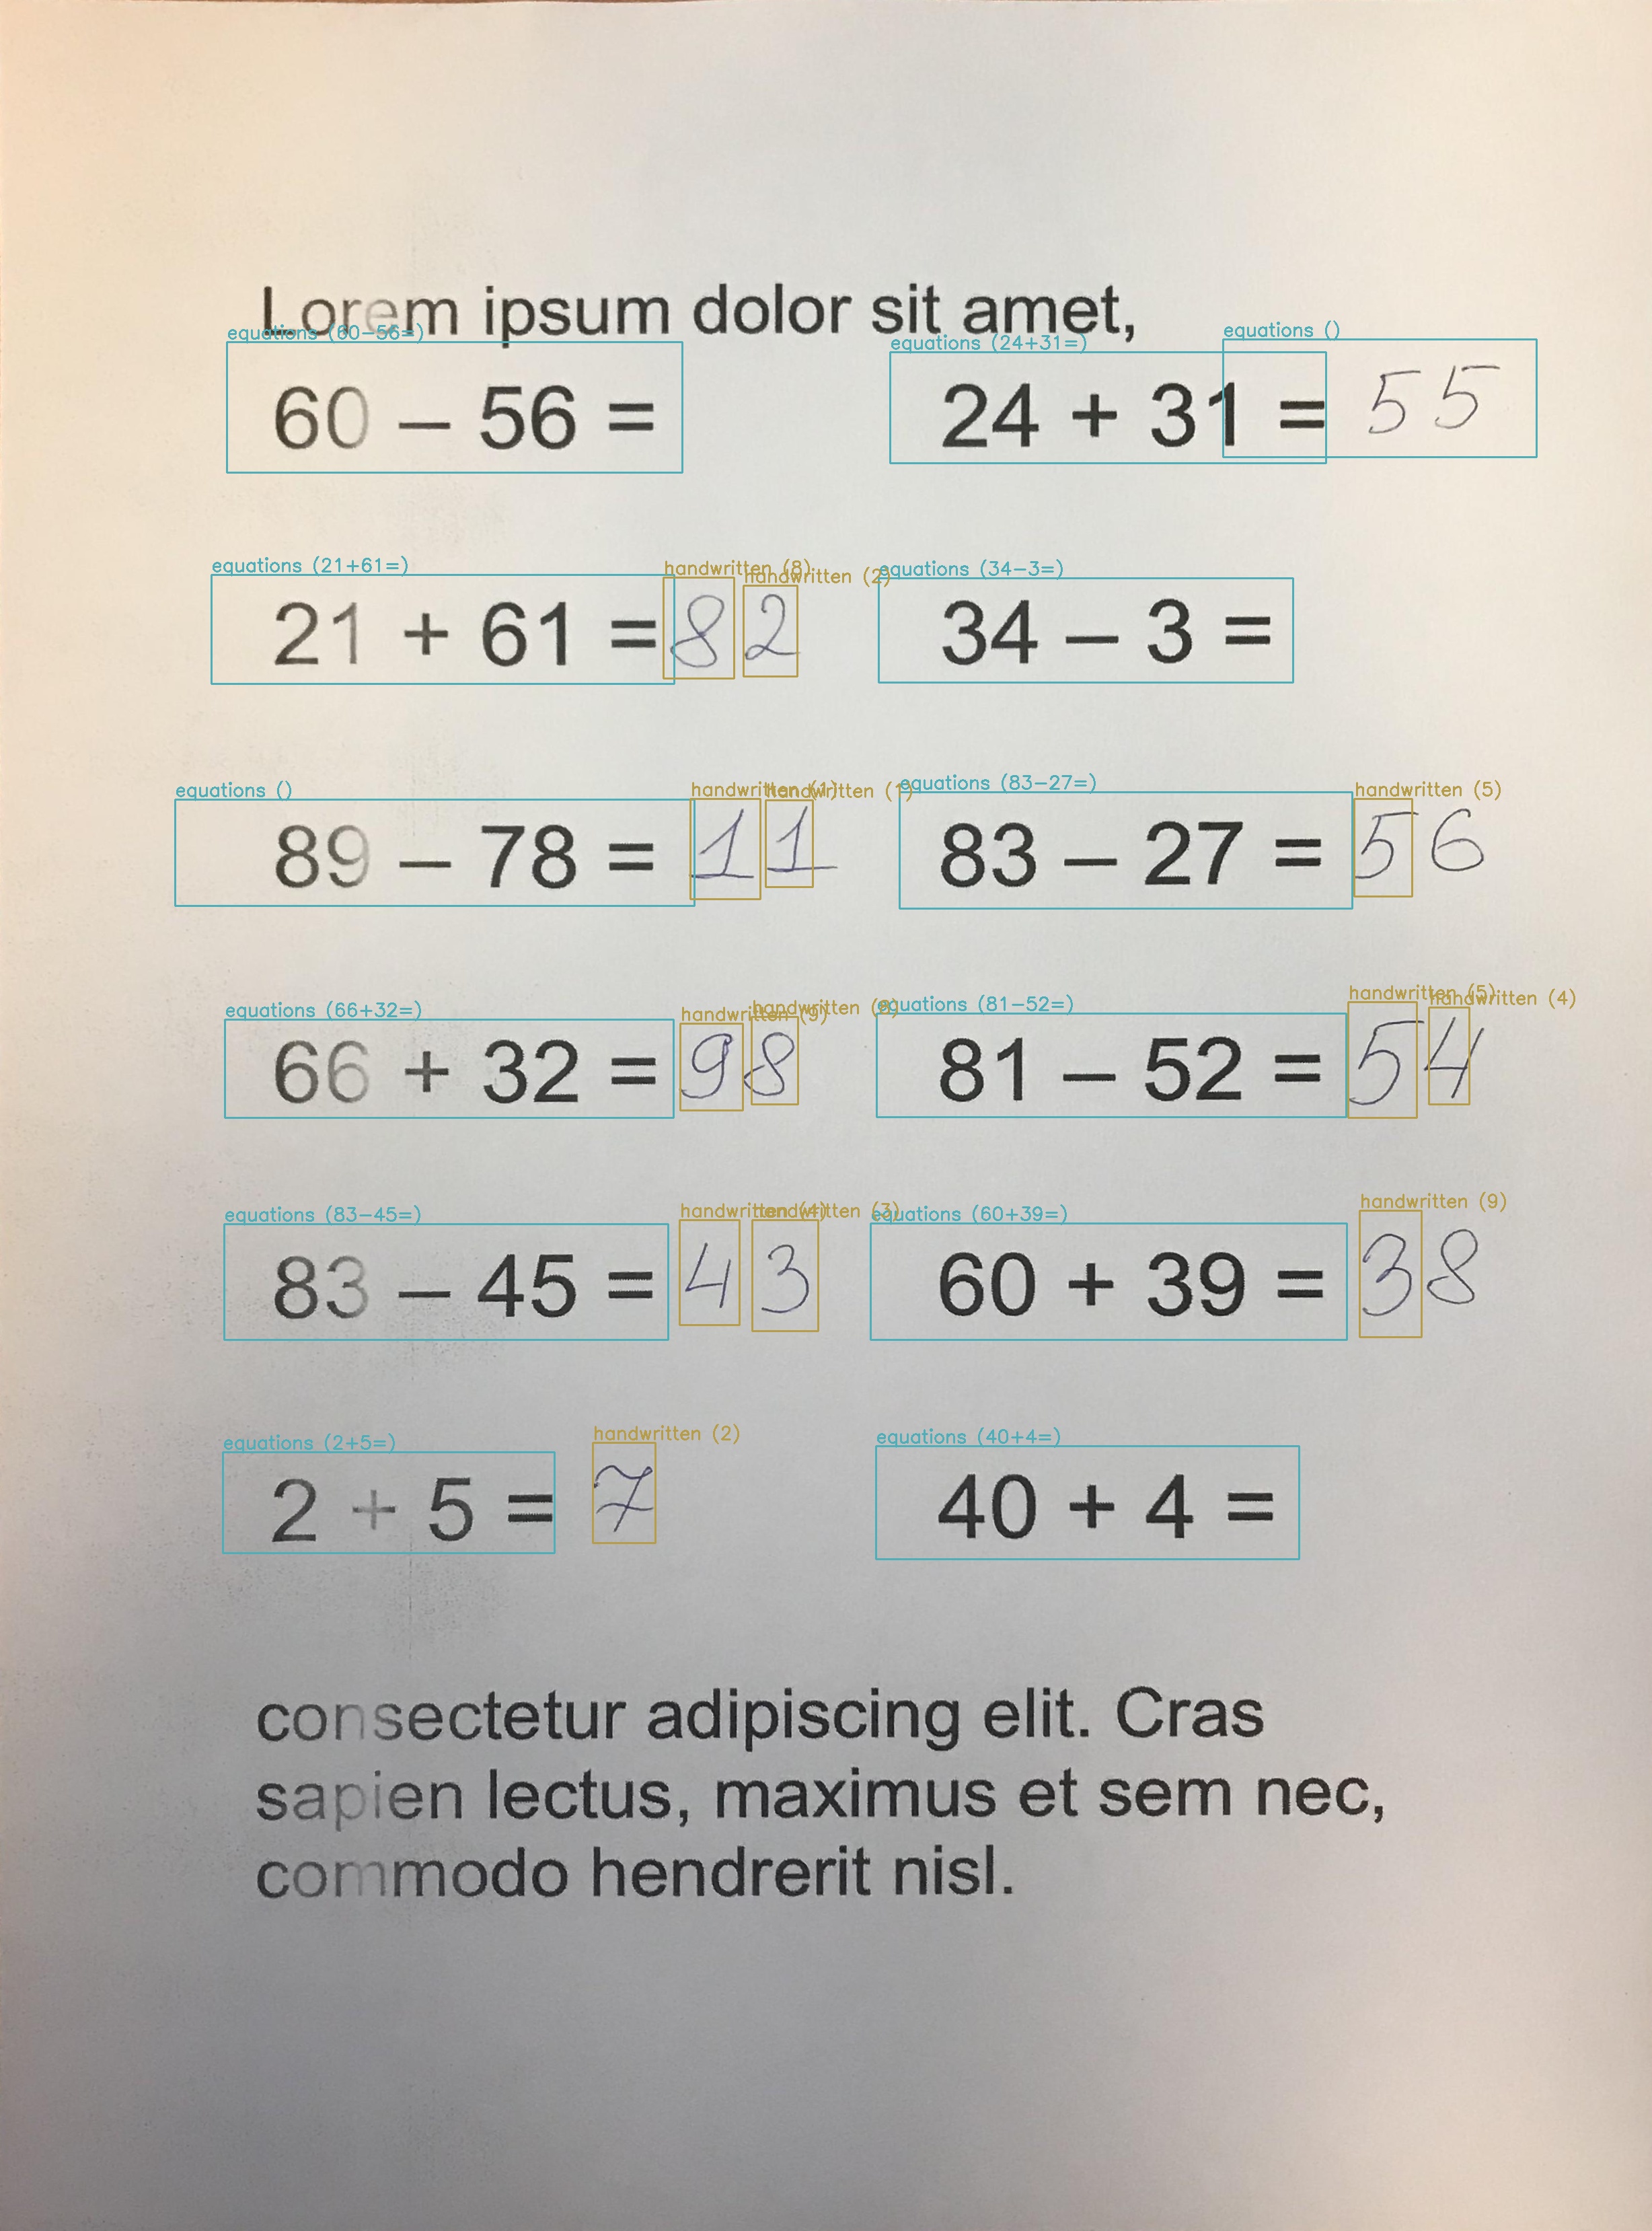 Lorem ipsum dolor sit amet,
equations (60-56=) equations (24+31=) equations ()
60 – 56 = 24 + 31 = 55
equations (21+61=) handwritten (8) handwritten (2) equations (34-3=)
21 + 61 = 82 34 – 3 =
equations () handwritten (1) handwritten (1) equations (83-27=) handwritten (5)
89 – 78 = 11 83 – 27 = 56
equations (66+32=) handwritten (9) handwritten equations (81-52=) handwritten (5) handwritten (4)
66 + 32 = 98 81 – 52 = 54
equations (83-45=) handwritten (4) handwritten (3) equations (60+39=) handwritten (9)
83 – 45 = 43 60 + 39 = 38
equations (2+5=) handwritten (2) equations (40+4=)
2 + 5 = 7 40 + 4 =
consectetur adipiscing elit. Cras
sapien lectus, maximus et sem nec,
commodo hendrerit nisl.